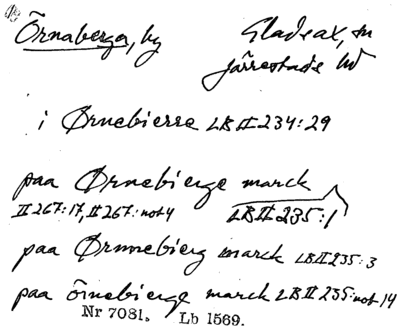 Örnaberga, by Gladsax, sn
Järrestads hd
i Ørnebierre LB II 234:29
paa Ørnebierge marck
II 267:17, II 267:not 4 LB II 235:1
paa Ørnnebierg marck LB II 235:3
paa örnebierge marck LB II 235:not 14
Nr 7081. Lb 1569.